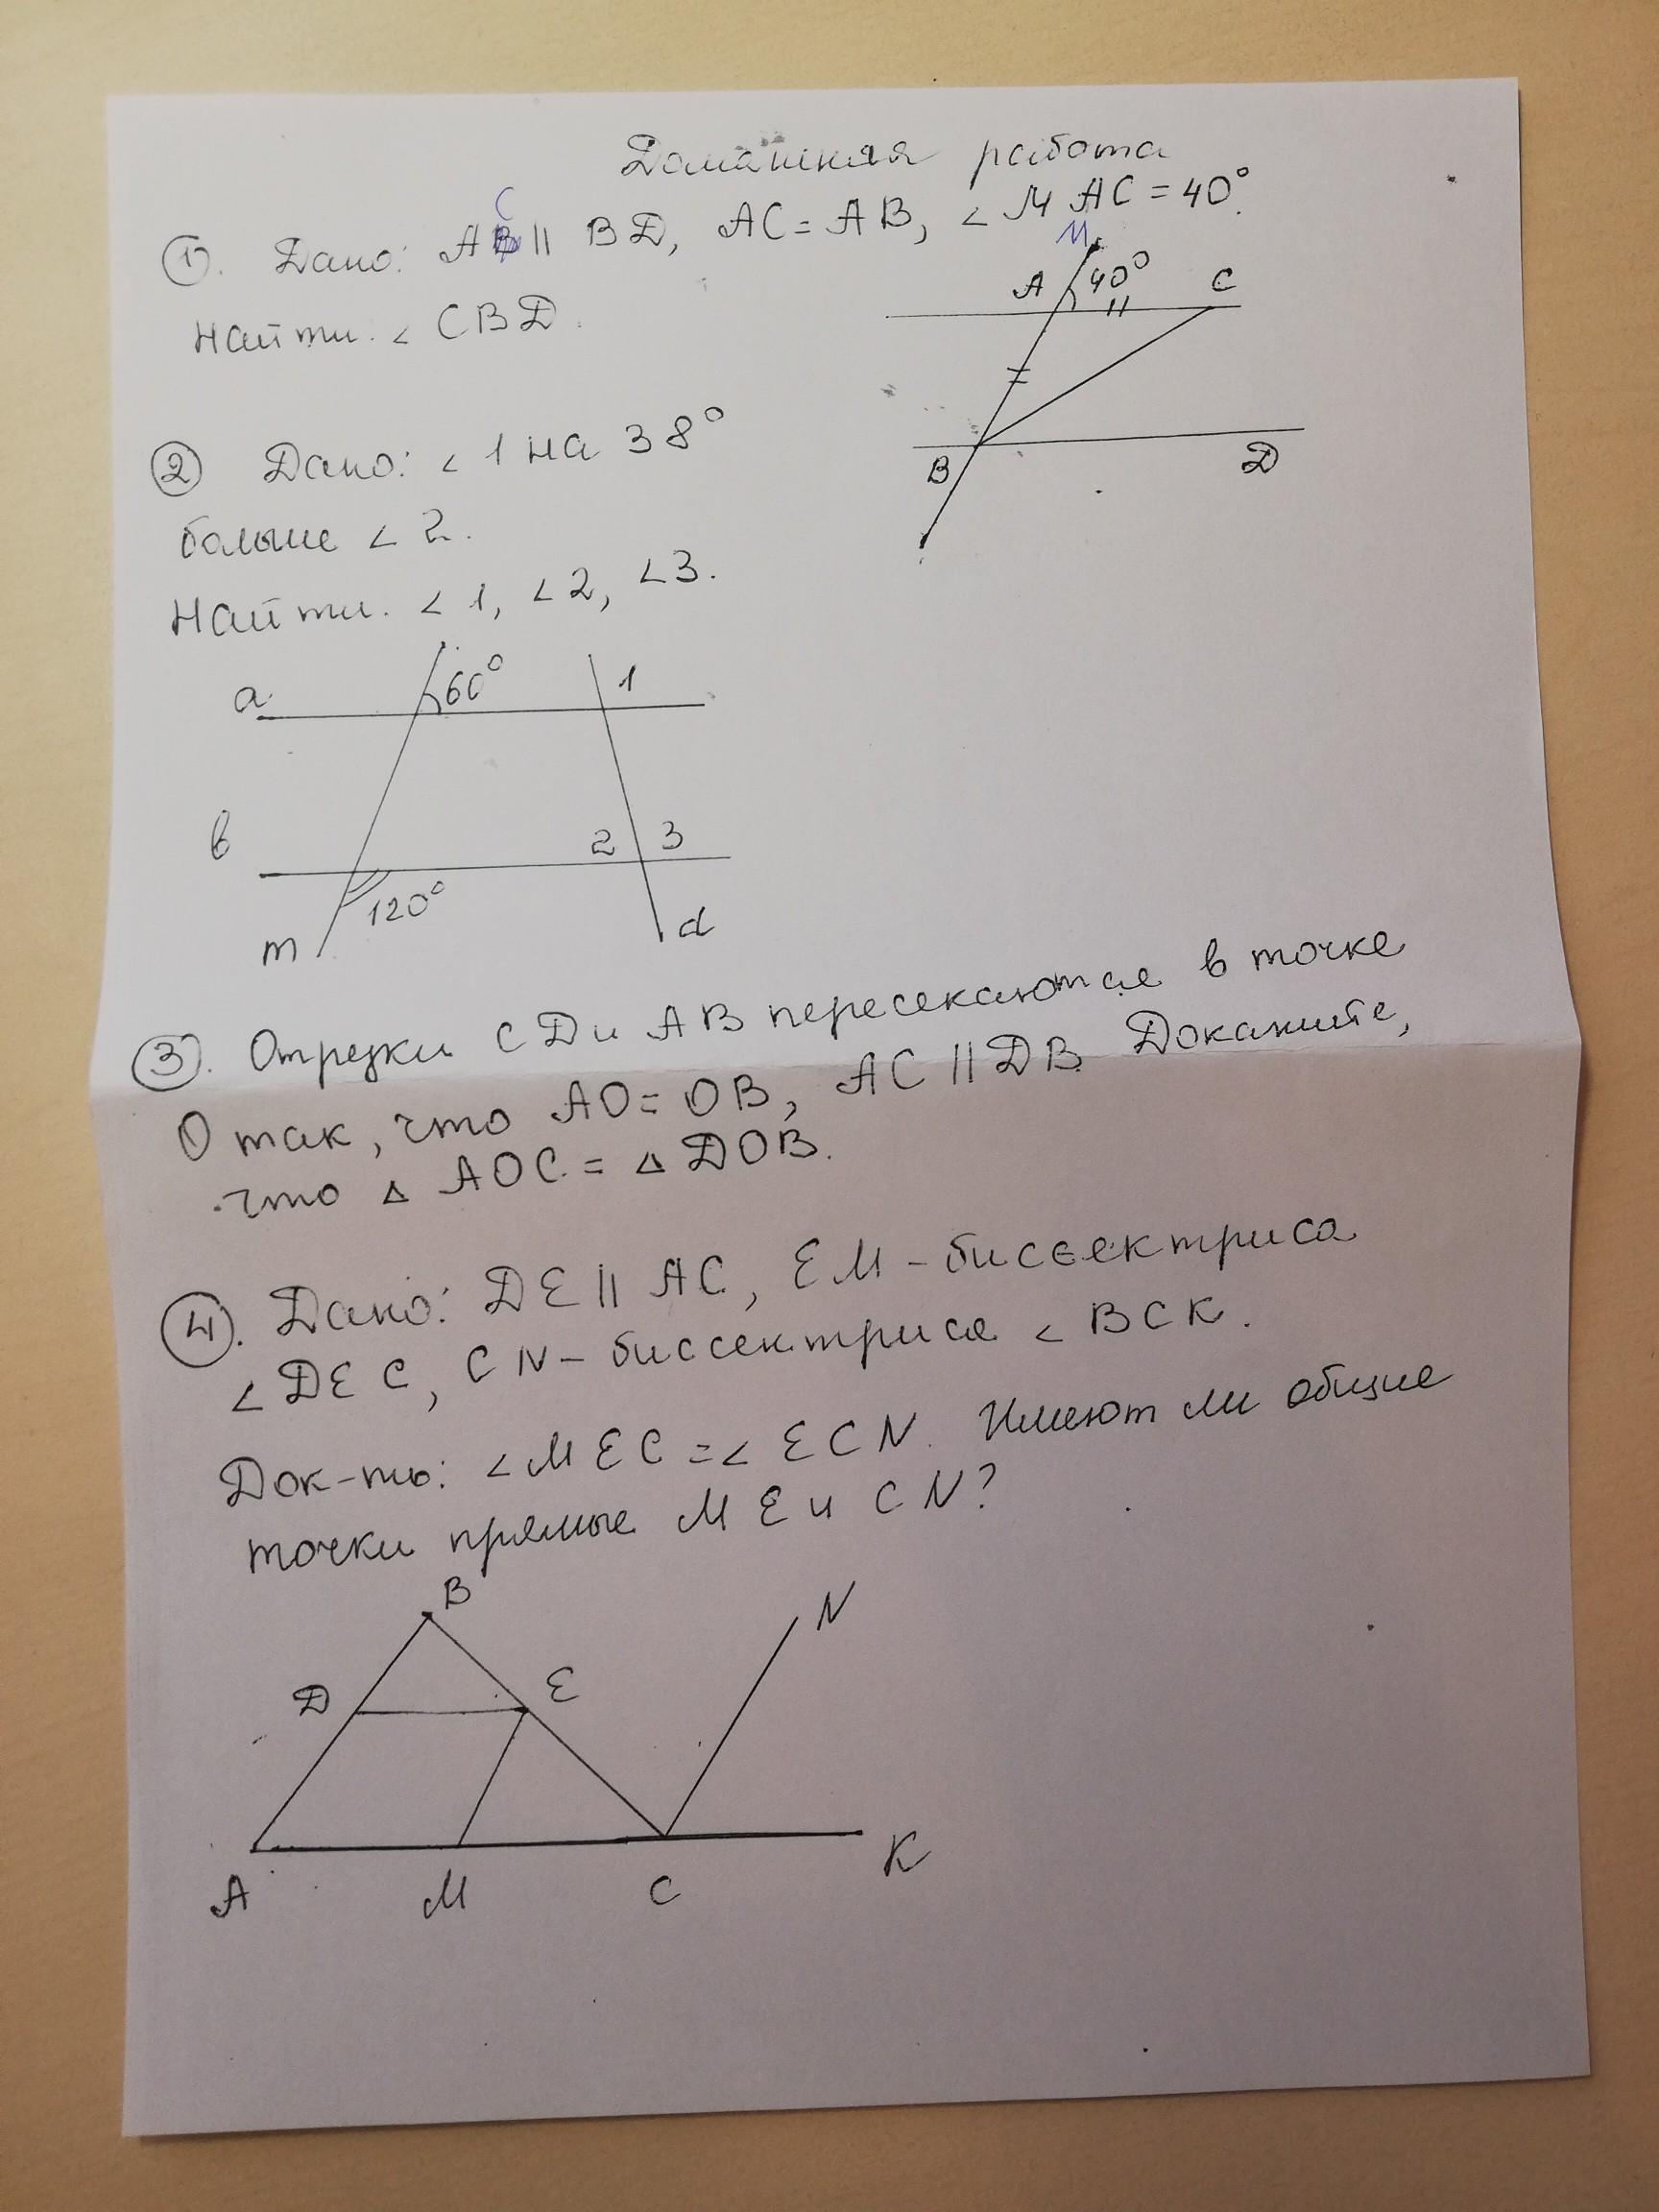 Домашняя работа
①. Дано: AC || BD, AC = AB, ∠MAC = 40°.
Найти: ∠CBD.
M
A 40° C
B D
② Дано: ∠1 на 38°
больше ∠2.
Найти: ∠1, ∠2, ∠3.
a 60° 1
b 2 3
120°
m d
③. Отрезки CD и AB пересекаются в точке
O так, что AO = OB, AC || DB. Докажите,
что △ AOC = △ DOB.
④. Дано: DE || AC, EM - биссектриса
∠DEC, CN - биссектриса ∠BCK.
Док-ть: ∠MEC = ∠ECN. Имеют ли общие
точки прямые ME и CN?
B N
D E
A M C K